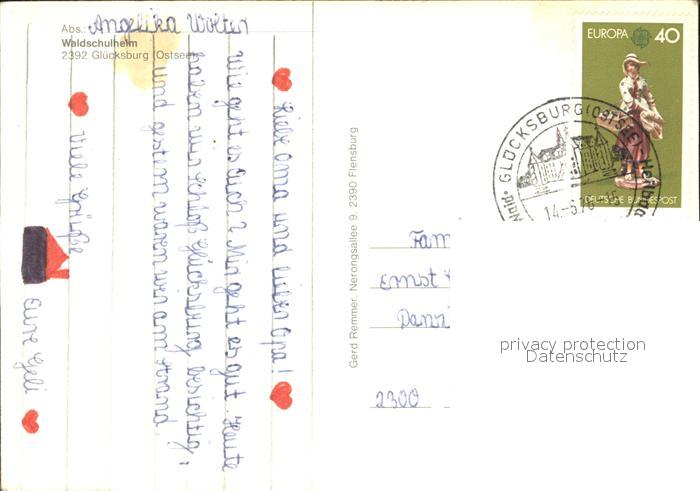 Abs.: Angelika Wolter
Waldschulheim
2392 Glücksburg (Ostsee)
Liebe Oma und lieber Opa!
Wie geht es Euch? Mir geht es gut. Heute
haben wir Schloß Glücksburg besichtigt,
und gestern waren wir am Strand.
Viele Grüße
Eure Geli
Gerd Remmer, Nerongsallee 9, 2390 Flensburg
EUROPA 40
DEUTSCHE BUNDESPOST
GLÜCKSBURG (OSTSEE)
Heilbad
14.-6.76
Fam
Ernst
Danzi
2300
privacy protection
Datenschutz